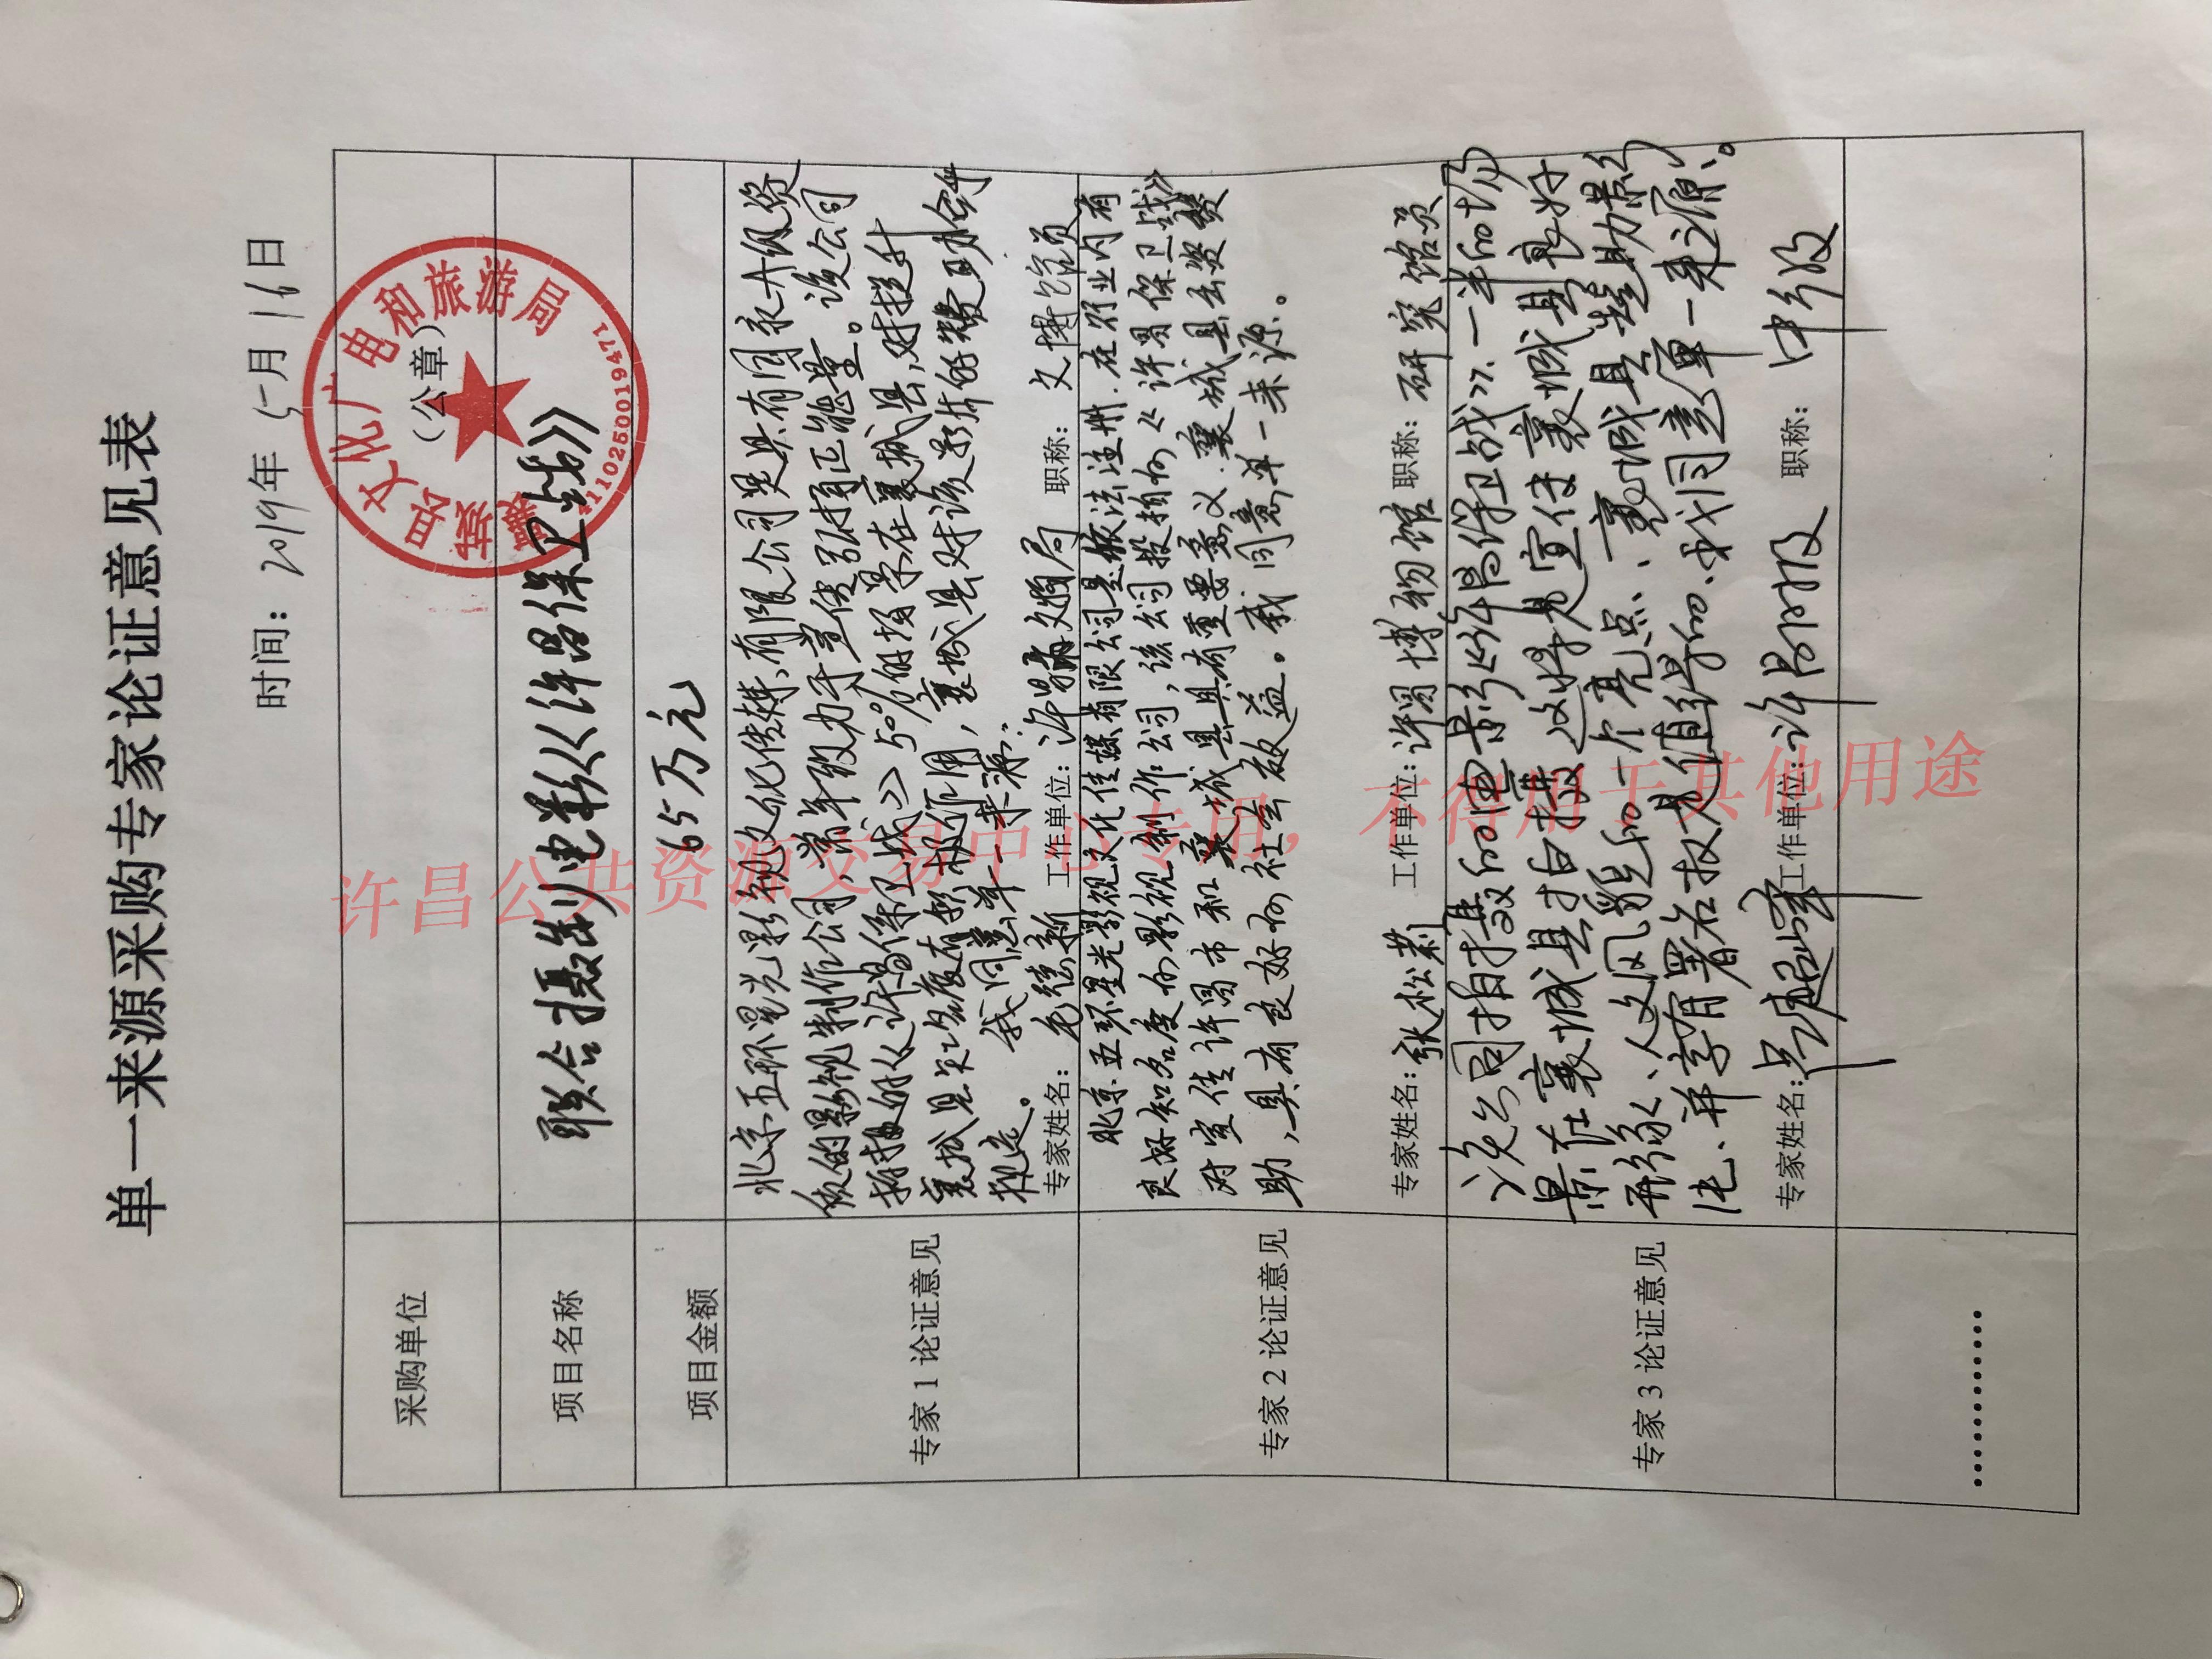 单一来源采购专家论证意见表
时间：2019年5月16日
采购单位
（公章）
襄城县文化广电和旅游局
4110250019471
项目名称
联合摄制电影《许昌保卫战》
项目金额
65万元
专家1论证意见
北京五环星光影视文化传媒有限公司是具有国家A级资
质的影视制作公司，常年致力于宣传弘扬正能量。该公司
拍摄的《许昌保卫战》50%的场景在襄城县，对提升
襄城县知名度有积极作用，襄城县对该影片的赞助合
规定。我同意单一来源。
专家姓名：毛德新 工作单位：许昌市文物局 职称：文博馆员
专家2论证意见
北京五环星光影视文化传媒有限公司是依法注册，在行业内有
良好知名度的影视制作公司，该公司投拍的《许昌保卫战》
对宣传许昌市和襄城县具有重要意义，襄城县出资赞
助，具有良好的社会效益。我同意单一来源。
专家姓名：张松莉 工作单位：许昌博物馆 职称：研究馆员
专家3论证意见
该公司拍摄的电影《许昌保卫战》，一半的场
景在襄城县拍摄，这将是宣传襄城县良好
形象、人文风貌的一个亮点，襄城县赞助影
片，并享有署名权是值得的，我同意单一来源。
专家姓名：吴超峰 工作单位：许昌日报 职称：中级
…………
许昌公共资源交易中心专用，不得用于其他用途